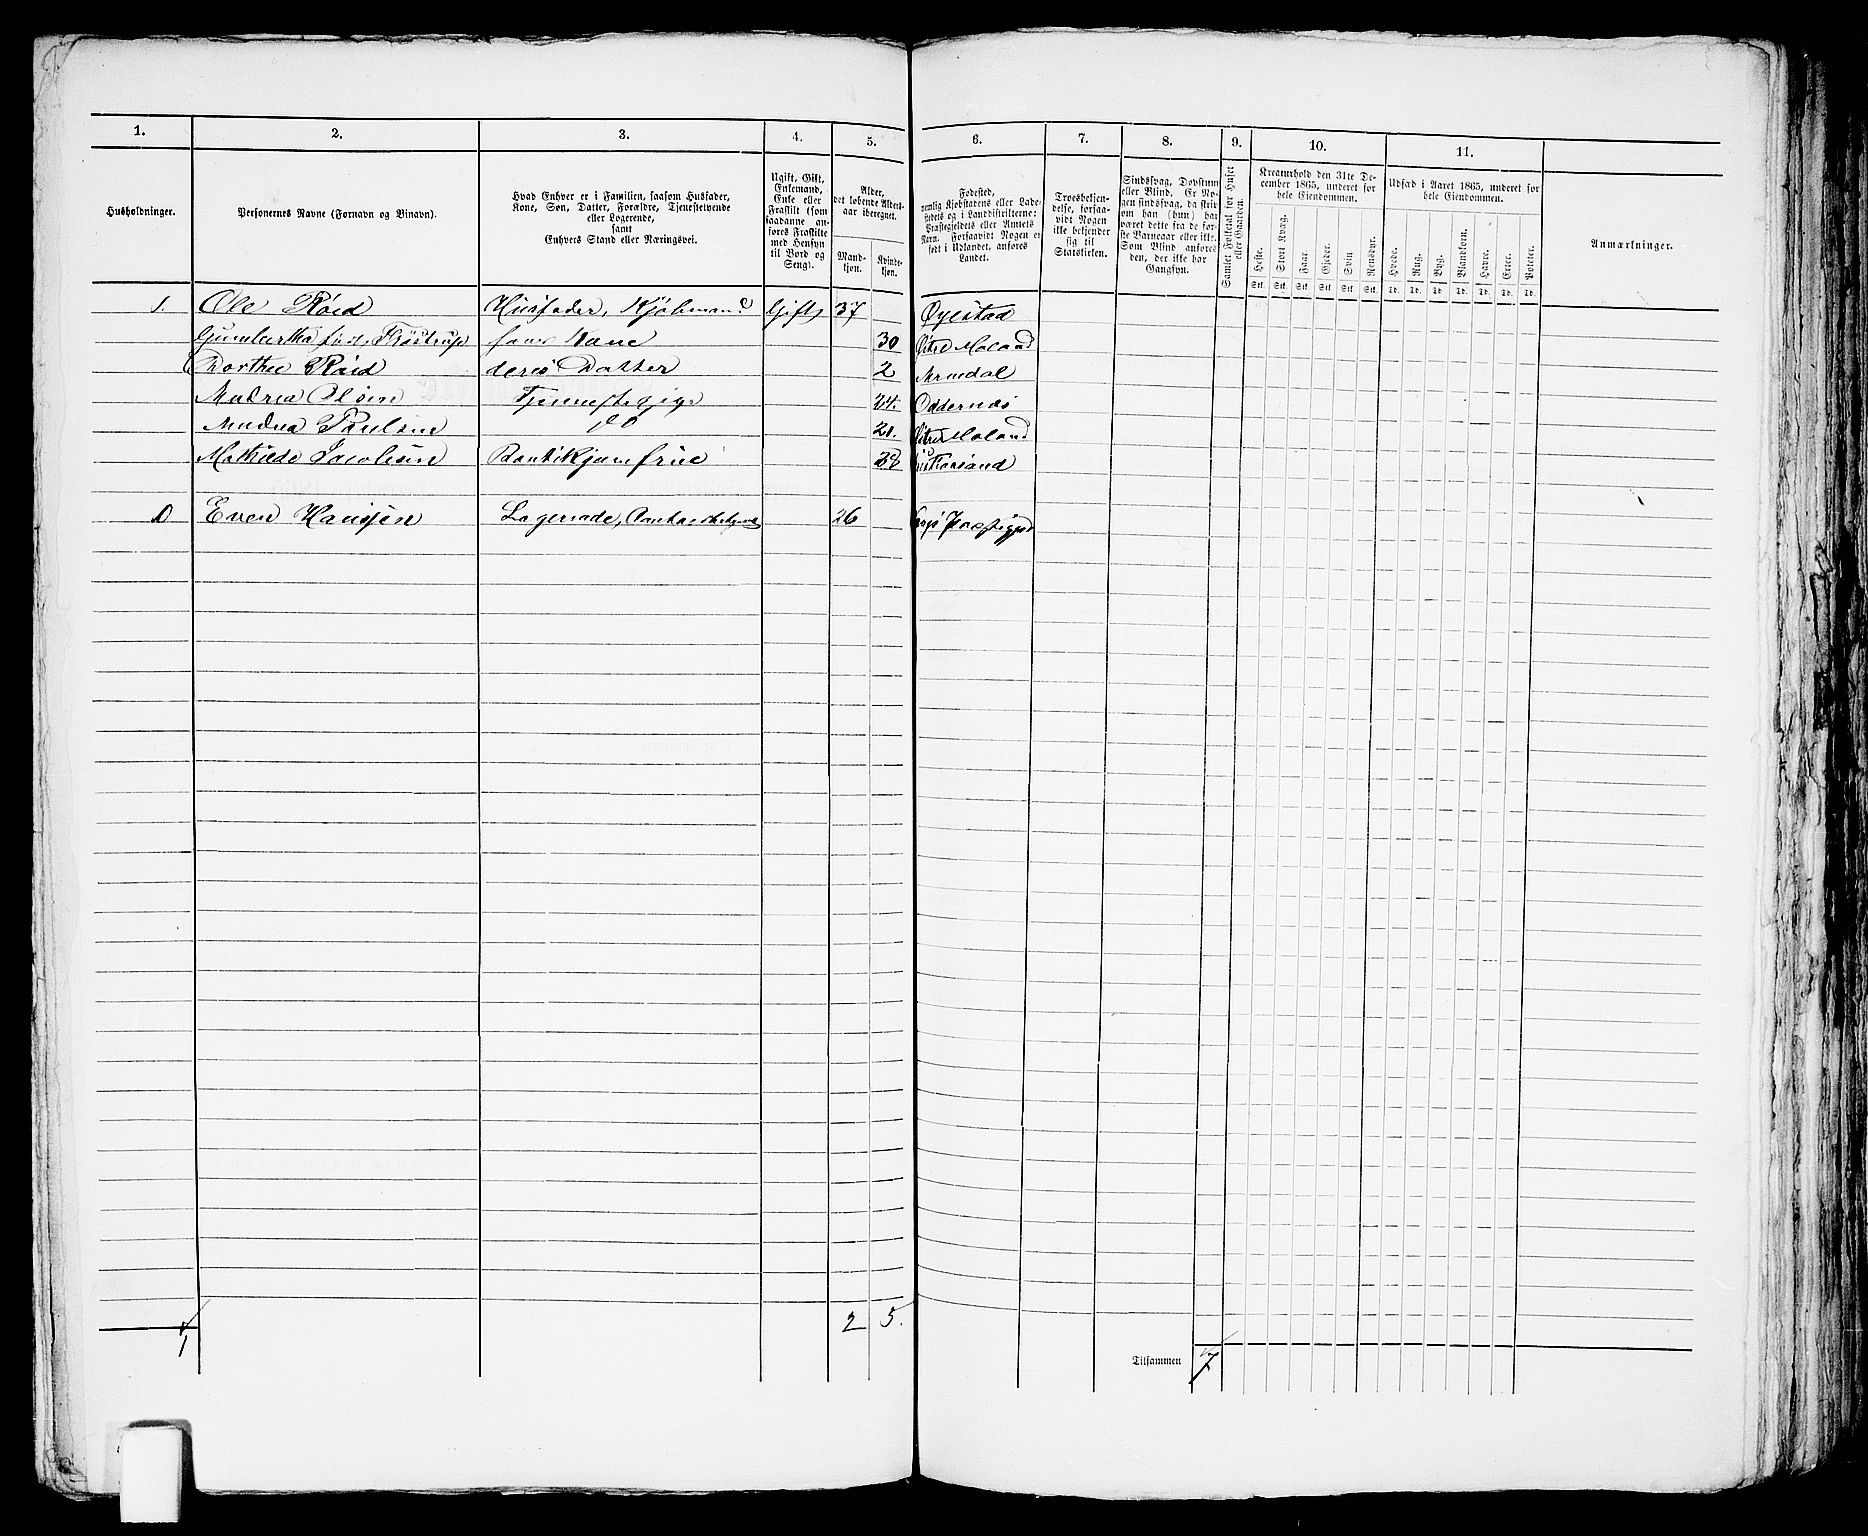 1. 2. 3. 4. 5. 6. 7. 8. 9. 10. 11.
Husholdninger.
Personernes Navne (Fornavn og Binavn).
Hvad Enhver er i Familien, saasom Husfader,
Kone, Søn, Datter, Forældre, Tjenestetyende
eller Logerende,
samt
Enhvers Stand eller Næringsvei.
Ugift, Gift,
Enkemand,
Enke eller
Fraskilt (som
saadanne an-
føres Fraskilte
med Hensyn
til Bord og
Seng).
Alder,
det løbende Alders-
aar iberegnet.
Mand-
kjøn.
Kvinde-
kjøn.
Fødested,
nemlig Kjøbstadens eller Lade-
stedets og i Landdistrikterne:
Præstegjeldets eller Amtets
Navn. Forsaavidt Nogen er
født i Udlandet, anføres
Landet.
Troesbekjen-
delse, forsaa-
vidt Nogen
ikke bekjender
sig til
Statskirken.
Sindssvag, Døvstum
eller Blind. Er No-
gen sindssvag, da skriv
om han (hun) har
været dette fra de før-
ste Barneaar eller ikke.
Som Blind anføres
den, der ikke har
Gangsyn.
Samlet Folketal for Huset
eller Gaarden.
Kreaturhold den 31te De-
cember 1865, underet for
hele Eiendommen.
Heste. Stort Kvæg. Faar. Gjeder. Svin Rensdyr.
Stk. Stk. Stk. Stk. Stk. Stk.
Udsæd i Aaret 1865, underet for
hele Eiendommen.
Hvede. Rug. Byg. Blandkorn. Havre. Erter. Poteter.
Td. Td. Td. Td. Td. Td. Td.
Anmærkninger.
1. Ole Röed Husfader, Kjöbmand Gift 37 Øyestad
Frøstrup hans Kone 30 Østre Moland
Dorthee Röed deres Datter 2 Arendal
Olsen Tjenestepige 24. Oddernæs
Paulsen do 20. Østre Moland
Mathilde Jacobsen Butikjomfrue
Even Hanssen Logerende, 26
1 2 5.
Tilsammen 7